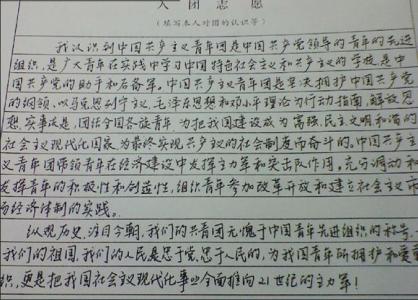 入团志愿
(填写本人对团的认识等)
我认识到中国共产主义青年团是中国共产党领导的青年的先进
组织,是广大青年在实践中学习中国特色社会主义和共产主义的学校,是中
国共产党的助手和后备军。中国共产主义青年团是坚决拥护中国共产党
的纲领,以马克思列宁主义、毛泽东思想和邓小平理论为行动指南,解放思
想,实事求是,团结全国各族青年,为把我国建设成为富强,民主文明和谐的
社会主义现代化国家,为最终实现共产主义的社会制度而奋斗的。中国共产主
义青年团带领青年在经济建设中发挥主力军和突击队作用。充分调动和
发挥青年的积极性和创造性,组织青年参加改革开放和建立社会主义市
场经济体制的实践。
纵观历史,注目今朝,我们的共青团无愧于中国青年先进组织的称号。
我们的祖国,我们的人民是忠于党,忠于人民的,为我国青年所拥护和爱戴
识,更是把我国社会主义现代化事业全面推向21世纪的主力军!